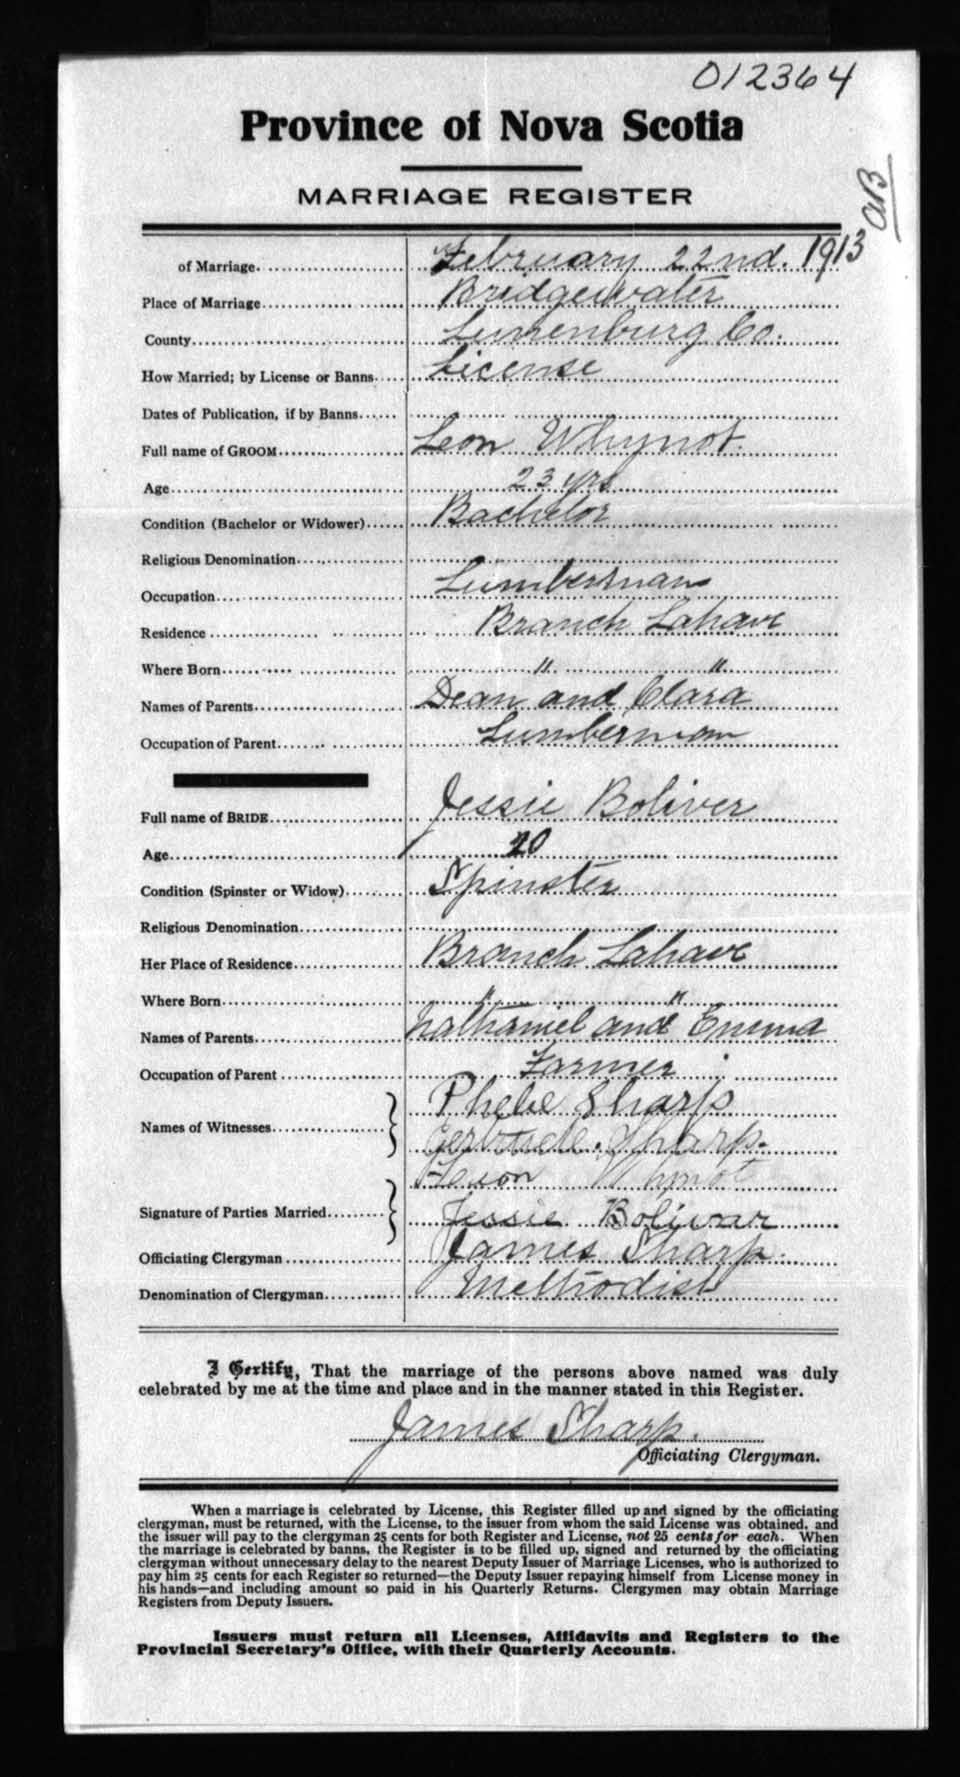 012364
Province of Nova Scotia
aB
MARRIAGE REGISTER
of Marriage. February 22nd. 1913
Place of Marriage Bridgewater
County Lunenburg Co.
How Married; by License or Banns License
Dates of Publication, if by Banns
Full name of GROOM Leon Whynot.
Age 23 yrs
Condition (Bachelor or Widower) Bachelor
Religious Denomination
Occupation Lumberman
Residence Branch Lahave
Where Born " "
Names of Parents Dean and Clara
Occupation of Parent Lumberman
Full name of BRIDE Jessie Boliver
Age 20
Condition (Spinster or Widow) Spinster
Religious Denomination
Her Place of Residence Branch Lahave
Where Born " "
Names of Parents Nathaniel and Emma
Occupation of Parent Farmer
Names of Witnesses Phebe Sharp
Gertrude. Sharp.
Signature of Parties Married Whynot
Jessie Bolivar
Officiating Clergyman James Sharp.
Denomination of Clergyman Methodist
I Certify, That the marriage of the persons above named was duly
celebrated by me at the time and place and in the manner stated in this Register.
James Sharp.
Officiating Clergyman.
When a marriage is celebrated by License, this Register filled up and signed by the officiating
clergyman, must be returned, with the License, to the issuer from whom the said License was obtained, and
the issuer will pay to the clergyman 25 cents for both Register and License, not 25 cents for each. When
the marriage is celebrated by banns, the Register is to be filled up, signed and returned by the officiating
clergyman without unnecessary delay to the nearest Deputy Issuer of Marriage Licenses, who is authorized to
pay him 25 cents for each Register so returned—the Deputy Issuer repaying himself from License money in
his hands—and including amount so paid in his Quarterly Returns. Clergymen may obtain Marriage
Registers from Deputy Issuers.
Issuers must return all Licenses, Affidavits and Registers to the
Provincial Secretary's Office, with their Quarterly Accounts.